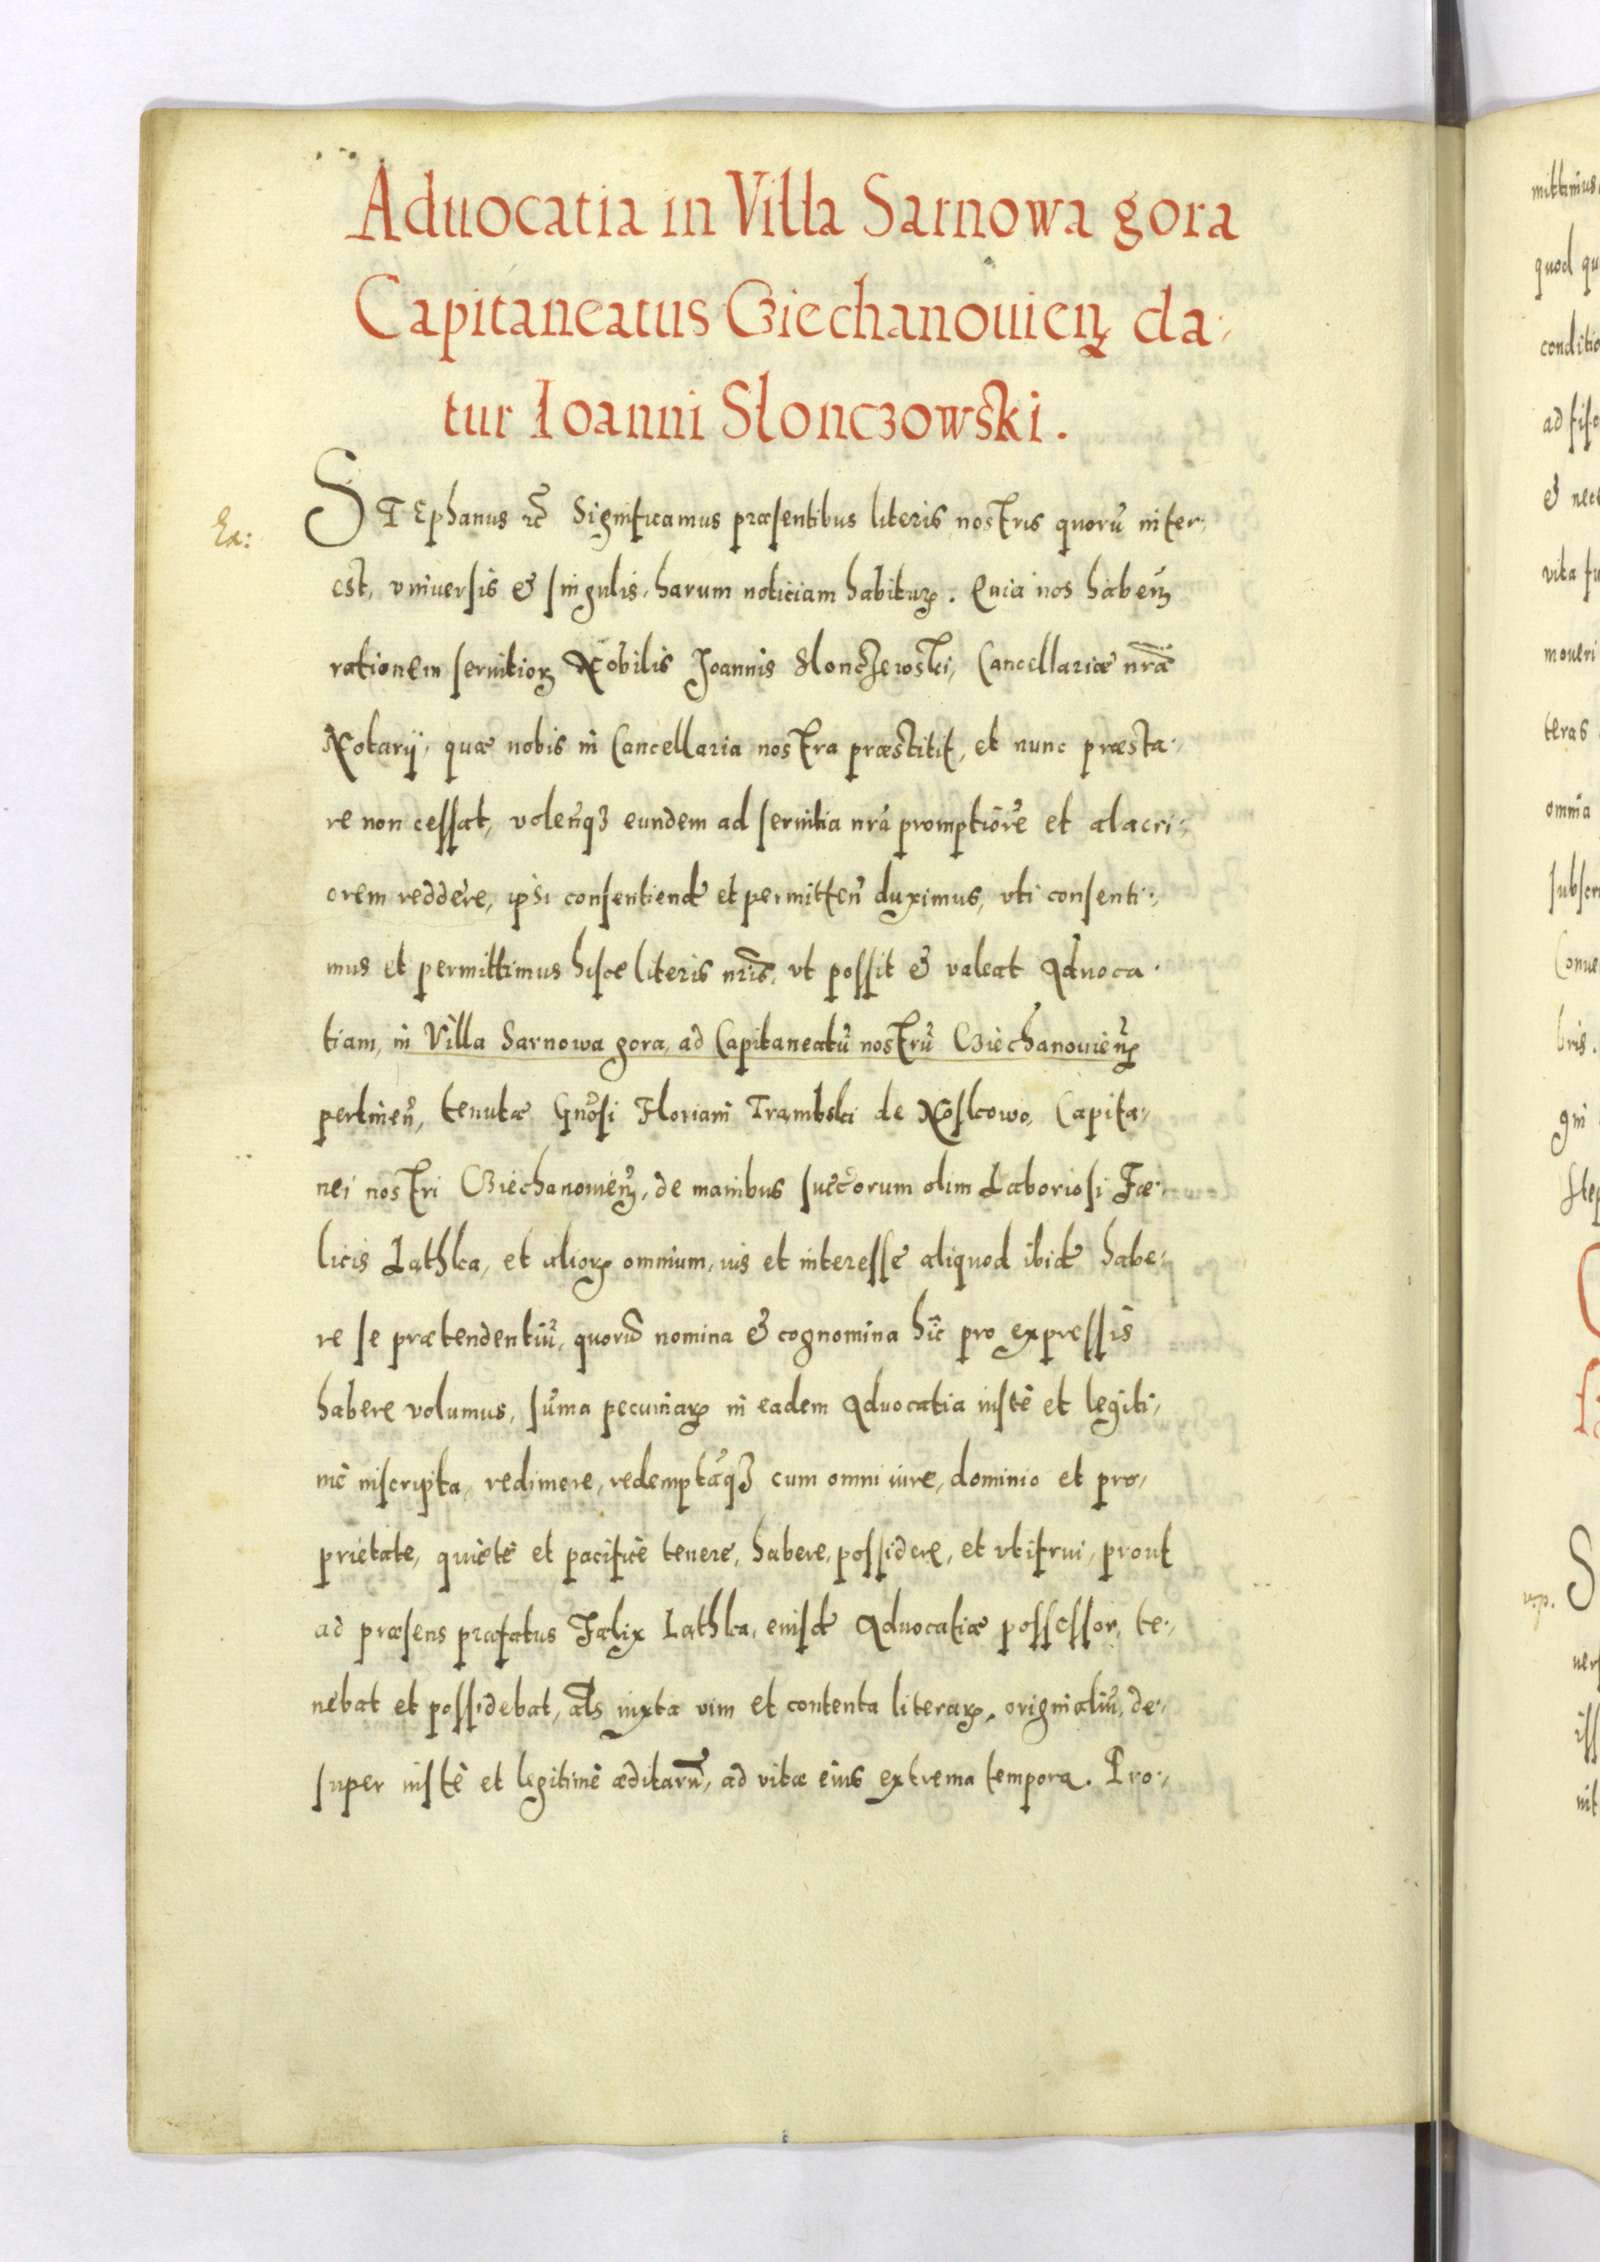 Aduocatia in Villa Sarnowa gora
Capitaneatus Ciechanouieñ da-
tur Ioanni Słonczowski.
Ex:
STEphanus etc̃ Significamus præsentibus literis nostris quorũ inter-
est, vniuersis & singulis, harum noticiam habituꝝ. Quia nos habeñ
rationem seruitioꝝ Nobilis Joannis Slonczewski, Cancellariæ nrãe
Notarij, quæ nobis in Cancellaria nostra præstitit, et nunc præsta-
re non cessat, voleñqꝫ eundem ad seruitia nrã promptiorẽ et alacri-
orem reddere, ipsi consentiend̃ et permitteñ duximus, vti consenti-
mus et permittimus hisce literis nrĩs, vt possit & valeat Aduoca-
tiam, in Villa Sarnowa gora, ad Capitaneatũ nostrũ Ciechanouieñ
pertineñ, tenutæ Gnõsi Floriani Trambski de Noskowo, Capita-
nei nostri Ciechanouieñ, de manibus succorum olim Laboriosi Fæ-
licis Lathka, et alioꝝ omnium, ius et interesse aliquod ibidẽ habe-
re se prætendentiũ, quorũ nomina & cognomina hic pro expressis
habere volumus, sũma pecuniaꝝ in eadem Aduocatia iustè et legiti-
mè inscripta, redimere, redemptãqꝫ cum omni iure, dominio et pro-
prietate, quietè et pacificè tenere, habere, possidere, et vtifrui, prout
ad præsens præfatus Fælix Lathka, eiusd̃ Aduocatiæ possessor, te-
nebat et possidebat, al̃s iuxta vim et contenta literaꝝ, originaliũ, de-
super iustè et legitimè æditarũ, ad vitæ eius extrema tempora. Pro-
mittimus
quod qu
conditio
ad fisc
& nec
vita fu
moueri
teras
omnia
subscr
Conue
bris.
gni
Step
v.p.
S
uer
iss
nit